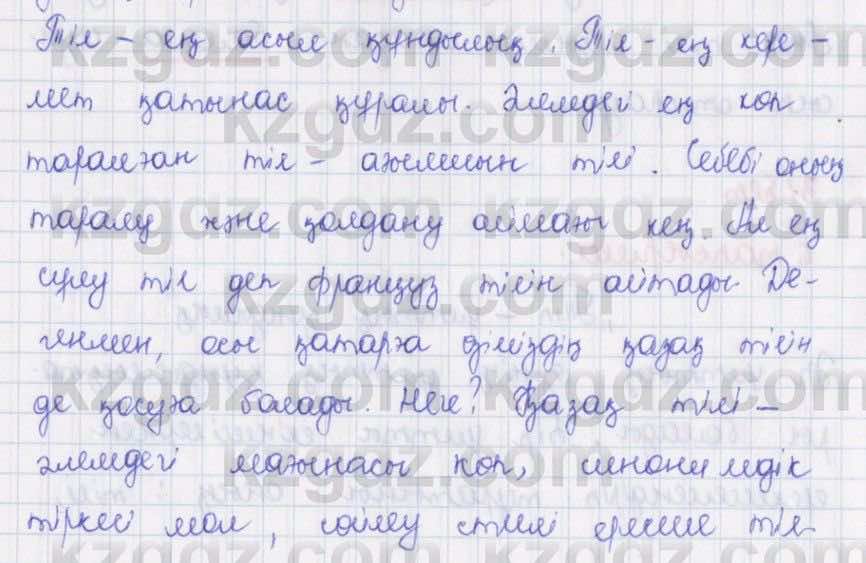 Тіл – ең асыл құндылық. Тіл – ең кере-
мет қатынас құралы. Әлемдегі ең көп
таралған тіл – ағылшын тілі. Себебі оның
таралу және қолдану аймағы кең. Ал ең
сұлу тіл деп француз тілін айтады. Де-
генмен, осы қатарға өзіміздің қазақ тілін
де қосуға болады. Неге? Қазақ тілі –
әлемдегі мағынасы көп, синонимдік
тіркесі мол, сөйлеу стилі ерекше тіл
kzgdz.com